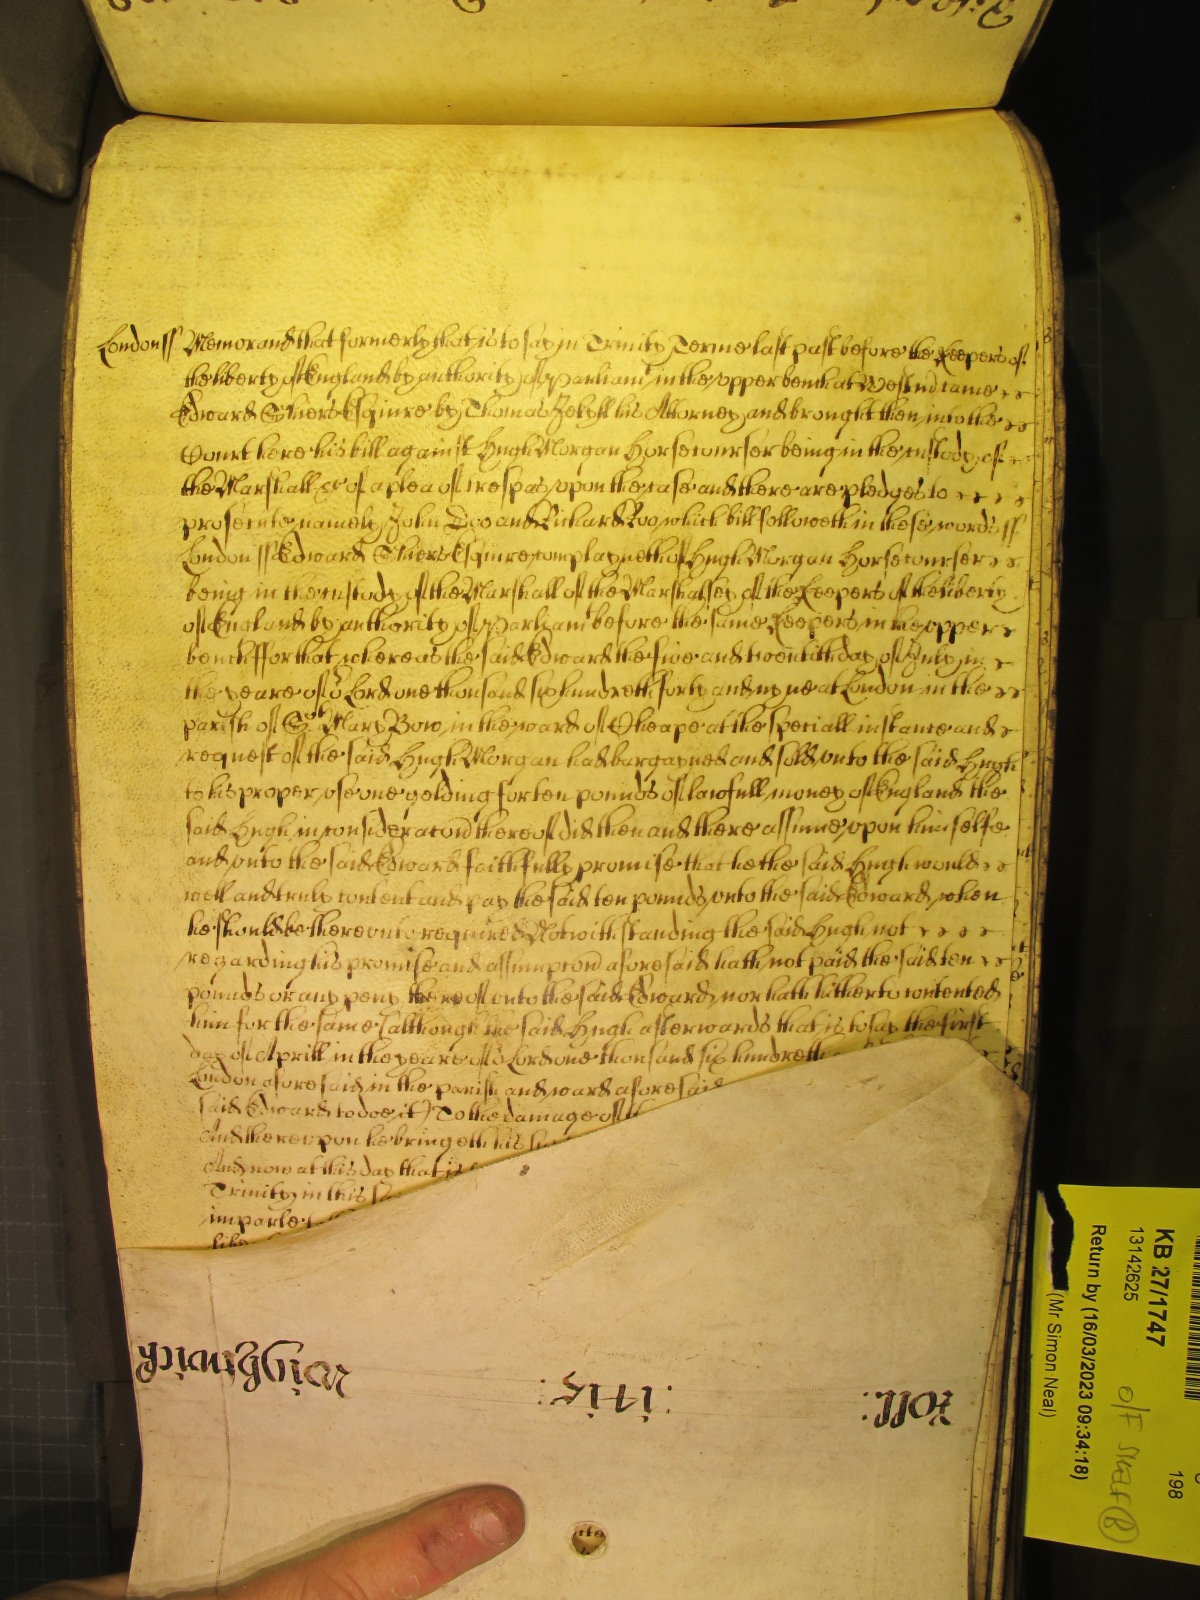 Londonss Memorand that formerly that is to say in Trinity Terme last past before the Keepers of
the liberty of England by authority of Parliam in the upper bench at Westm came
Edward Esquire by Thomas Jekyll his Attorney and brought then into the
Court here his bill against Hugh Morgan Horsecourser being in the custody of
the Marshall &c of a plea of trespas upon the case and there are pledges to
prosecute namely John Doo and Richard Roo which bill followeth in these words ss
London ss Edward Esquire complayneth of Hugh Morgan Horsecourser
being in the custody of the Marshall of the Marshalsey of the Keepers of the liberty
of England by authority of Parliam before the same Keepers in the upper
bench ffor that whereas the said Edward the five and twentith day of July in
the yeare of o Lord one thousand six hundreth forty and nyne at London in the
parish of St Mary Bow in the ward of Cheape at the speciall instance and
request of the said Hugh Morgan had bargayned and sold unto the said Hugh
to his proper use one gelding for ten pounds of lawfull money of England the
said Hugh in consideracond thereof did then and there assume upon himselfe
and unto the said Edward faithfully promise that he the said Hugh would
well and truly content and pay the said ten pounds unto the said Edward when
he should be thereunto required Notwithstanding the said Hugh not
regarding his promise and assumpcond aforesaid hath not paid the said ten
pounds or any peny thereof unto the said Edward nor hath hitherto contented
him for the same (although the said Hugh afterwards that is to say the first
day of Aprill in the yeare of o Lord one thousand six hundreth
London aforesaid in the parish and ward aforesaid
said Edward to doe it) To the damage of
And thereupon he bringeth his
And now at this day that is
Trinity in this
imparle
Wightwick
Roll:
KB 27/1747
13142625
Return by (16/03/2023 09:34:18)
(Mr Simon Neal)
O/F
198